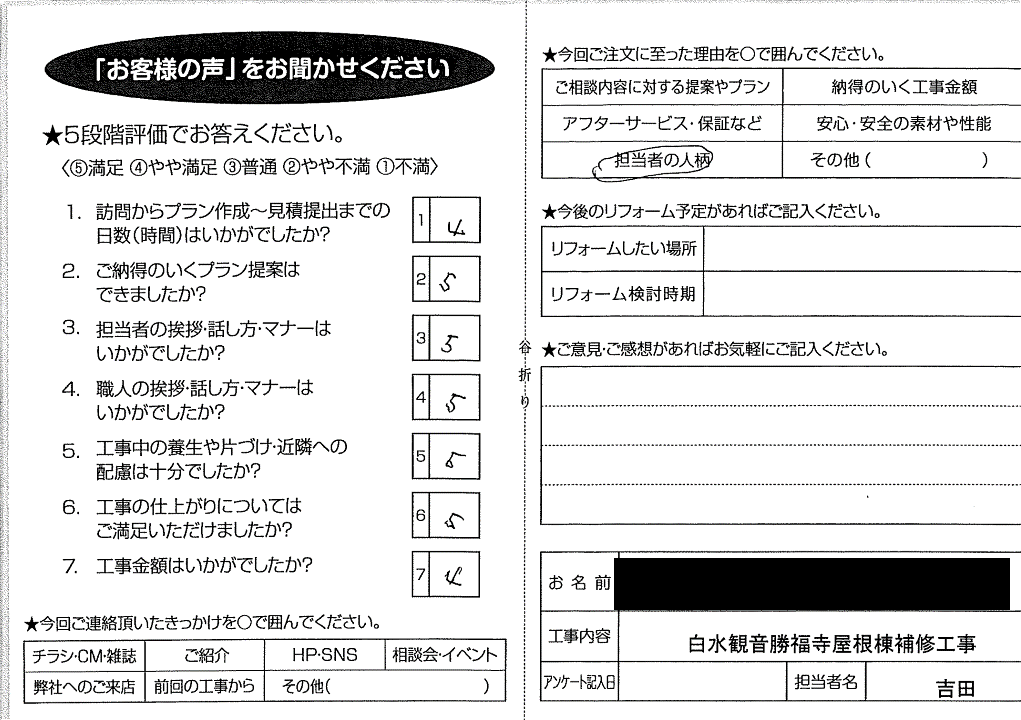 「お客様の声」をお聞かせください
★5段階評価でお答えください。
〈⑤満足 ④やや満足 ③普通 ②やや不満 ①不満〉
1. 訪問からプラン作成〜見積提出までの
日数(時間)はいかがでしたか?
1 4
2. ご納得のいくプラン提案は
できましたか?
2 5
3. 担当者の挨拶・話し方・マナーは
いかがでしたか?
3 5
4. 職人の挨拶・話し方・マナーは
いかがでしたか?
4 5
5. 工事中の養生や片づけ・近隣への
配慮は十分でしたか?
5 5
6. 工事の仕上がりについては
ご満足いただけましたか?
6 5
7. 工事金額はいかがでしたか?
7 4
★今回ご連絡頂いたきっかけを○で囲んでください。
チラシ・CM・雑誌 ご紹介 HP・SNS 相談会・イベント
弊社へのご来店 前回の工事から その他( )
谷折り
★今回ご注文に至った理由を○で囲んでください。
ご相談内容に対する提案やプラン 納得のいく工事金額
アフターサービス・保証など 安心・安全の素材や性能
担当者の人柄 その他( )
★今後のリフォーム予定があればご記入ください。
リフォームしたい場所
リフォーム検討時期
★ご意見・ご感想があればお気軽にご記入ください。
お名前
工事内容 白水観音勝福寺屋根棟補修工事
アンケート記入日 担当者名 吉田